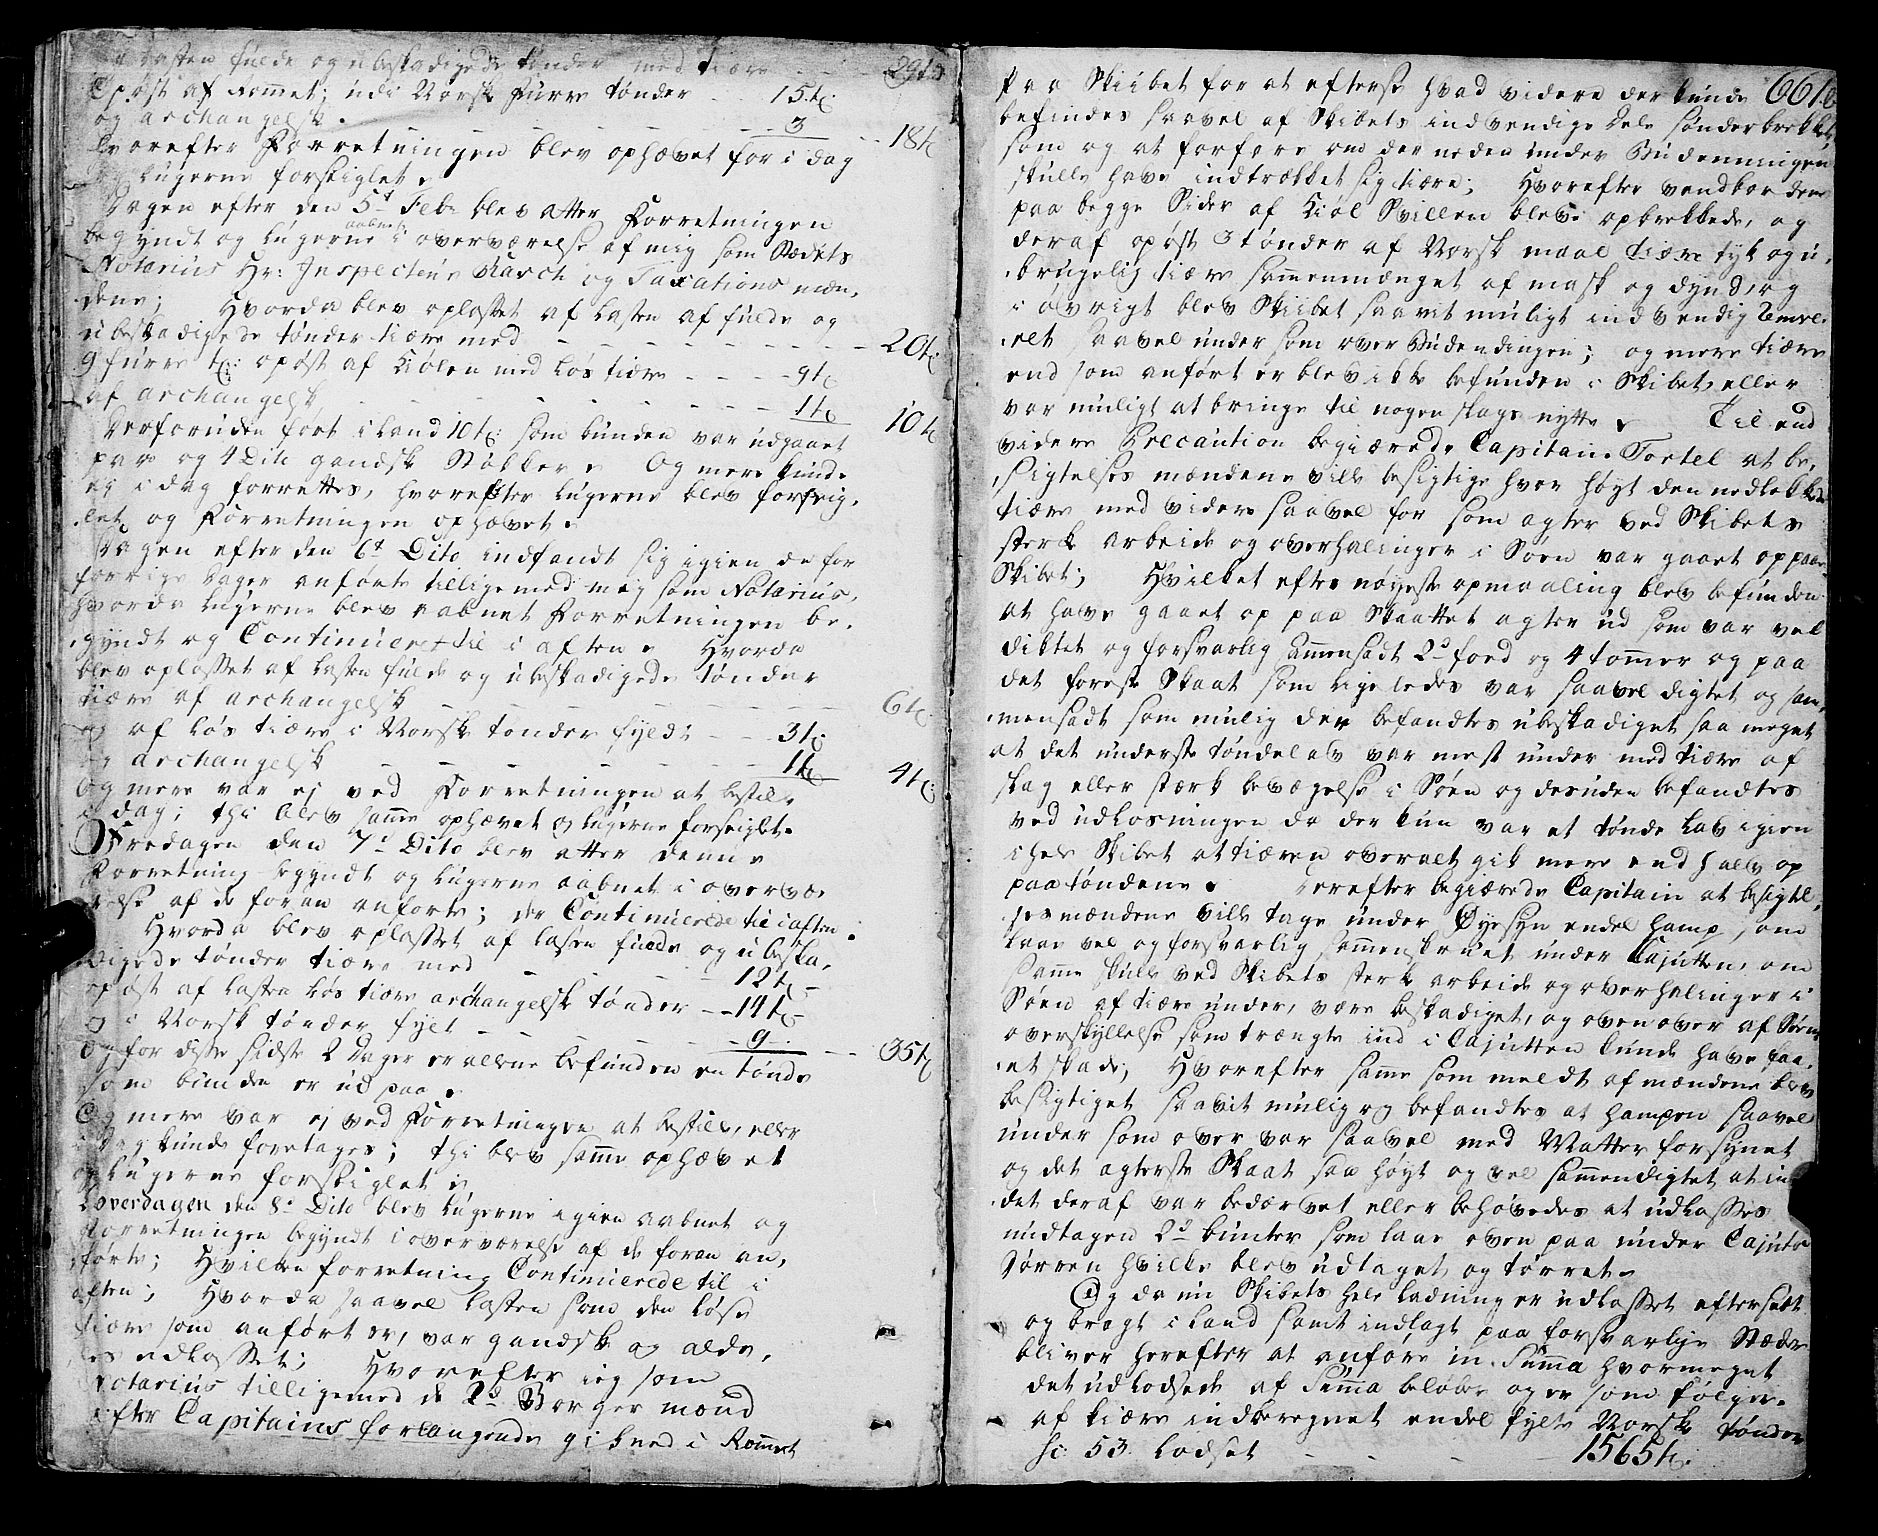 af Lasten fulde og ubeskadigede tønder med tiære - - - 29 t:
Opøst af Rommet; udi Norsk furre tønder - 15. t:
og archangelsk. - - - - - - - 3 - 18 t:
Hvorefter Forretningen blev ophævet for i dag
og Lugerne forsiglet.
Dagen efter den 5t Febr blev atter Forretningen
begyndt og Lugerne aabnet i overværelse af mig som Stedets
Notarius Hr: Inspecteur Kasch og Taxations mæn,
dene; Hvorda blev oplosset af Lasten af fulde og
ubeskadigede tønder tiære med - - - - - - - - 20 t:
9 furre t: opøst af Kiølen med løs tiære - - - 9 t:
af archangelsk - - - - - - - - 1 t: 10 t:
Desforuden ført i Land 10 t: som bunden var udgaaet
paa og 4 Dito gandske Støkker. Og mere kunde
ej i dag forrettes, hvorefter Lugerne blev forseig,
let og Forretningen ophævet.
Dagen efter den 6t Dito indfandt sig igien de for
forrige Dager anførte tilligemed mig som Notarius,
hvorda Lugerne blev aabnet Forretningen be,
gyndt og Continueret til i aften. Hvorda
blev oplosset af Lasten fulde og ubeskadigede tønder
tiære af archangelsk - - - - - - - - 6 t:
og af løs tiære i Norske tønder fyldt - - 3 t:
og archangelsk - - - - - - - 1 t: 4 t:
Og mere var ej ved Forretningen at bestille
i dag; thi blev samme ophævet og Lugerne forseiglet.
Fredagen den 7d Dito blev atter denne
Forretning begyndt og Lugerne aabnet i overvæ,
relse af de foran anførte; der Continuerede til i aften.
Hvorda blev oplosset af Lasten fulde og ubeska,
digede tønder tiære med - - - - - 12 t: -
opøst af Lasten Løs tiære archangelsk tønder - - 14 t:
og i Norsk tønder fylt - - - - - - 9 - - 35 t:
Og for disse sidste 2 Dager er allene befunden en tønde
som bunden er ud paa.
Og mere var ej ved Forretningen at bestille, eller
i dag kunde foretages; thi blev samme ophævet
og Lugerne forseiglet.
Løverdagen den 8d Dito blev Lugerne igien aabnet og
Forretningen begyndt i overværelse af de foran an,
førte; Hvilken forretning Continuerede til i
aften; Hvorda saavel Lasten som den løse
tiære som anført er, var gandske og alde,
les udlosset; Hvorefter ieg som
Notarius tilligemed de 2de Borger mænd
efter Capitains forlangende gik ned i Rommet
paa Skiibet for at efterse hvad videre der kunde 661.
befindes saavel af Skibets indvendige Dele sønderbrekket
som og at forfare om der neden under Budenningen
skulle have indtrækket sig tiære; Hvorefter vandborderne
paa begge Sider af Kiøl Svillen bleve opbrekkede, og
deraf opøst 3 tønder af Norsk maal tiære tyk og u,
brugelig tiære sammenmænget af mask og dynd, og
i øvrigt blev Skiibet saavit muligt indvendig
 saavel under som over Budendingen; og mere tiære
end som anført er blev ikke befunden i Skibet, eller
var muligt at bringe til nogen slags nytte. Til end
videre Precaution begiærede Capitain Tortel at be,
sigtelses mændene ville besigtige hvor høyt den nedlekkede
tiære med videre saavel for som agter ved Skibets
sterk arbeide og overhalinger i Søen var gaaet op paa
Skibet; Hvilket efter nøyeste opmaaling blev befunden
at have gaaet op paa Skaattet agter ud som var vel
diktet og forsvarlig ammensadt 2d foed og 4 tommer og paa
det forreste Skaat som ligeledes var saavel digtet og sam,
mensadt som mulig der befandtes ubeskadiget saa meget
at det underste tøndelav var mest under med tiære af
slag eller stærk bevægelse i Søen og desuden befandtes
ved udlosningen da der kun var et tønde lav igien
i hele Skibet at tiæren overalt gik mere end halv op
paa tøndene. Derefter begiærede Capitain at besigtel,
ses mændene ville tage under Øyesyn endel hamp, som
laae vel og forsvarlig sammenskruet under Cajutten, om
samme skulle ved Skibets sterk arbeide og overhalinger i
Søen af tiære under, være beskadiget, og oven over af Søens
overskyllelse som trængte ind i Cajutten kunde have faa,
et skade; Hvorefter samme som meldt af mændene blev
besigtiget saavit mulig og befandtes at hampen saavel
under som over var saavel med Matter forsynet
og det agterste Skaat saa høyt og vel sammendigtet at in,
det deraf var bedærvet eller behøvedes at udlosses
undtagen 2de bunter som laae oven paa under Cajute
Dørren hvilke blev udtaget og tørret.
Og da nu Skibets hele ladning er udlosset eftersadt
og bragt i Land samt indlagt paa forsvarlige Stæder
bliver herefter at anføre in Suma hvormeget
det udlodsede af Suma beløber og er som følger.
af tiære indberegnet endel fylte Norske tønder
sc: 53. lodset - - - - 1565 t: